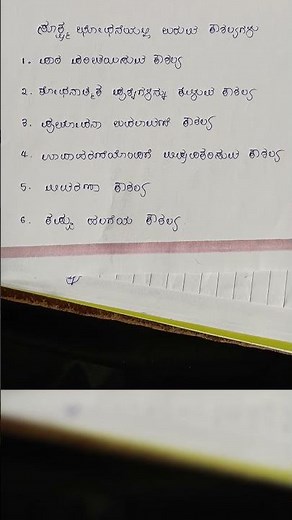 ಸೂಕ್ಷ್ಮ ಬೋಧನೆಯಲ್ಲಿ ಬರುವ ಕೌಶಲ್ಯಗಳು
1. ಪಾಠ ಪರಿಚಯಿಸುವ ಕೌಶಲ್ಯ
2. ಶೋಧನಾತ್ಮಕ ಪ್ರಶ್ನೆಗಳನ್ನು ಕೇಳುವ ಕೌಶಲ್ಯ
3. ಪ್ರಚೋದನಾ ಬದಲಾವಣೆ ಕೌಶಲ್ಯ
4. ಉದಾಹರಣೆಯೊಂದಿಗೆ ದೃಷ್ಟೀಕರಿಸುವ ಕೌಶಲ್ಯ
5. ವಿವರಣಾ ಕೌಶಲ್ಯ
6. ಕಪ್ಪು ಹಲಗೆಯ ಕೌಶಲ್ಯ